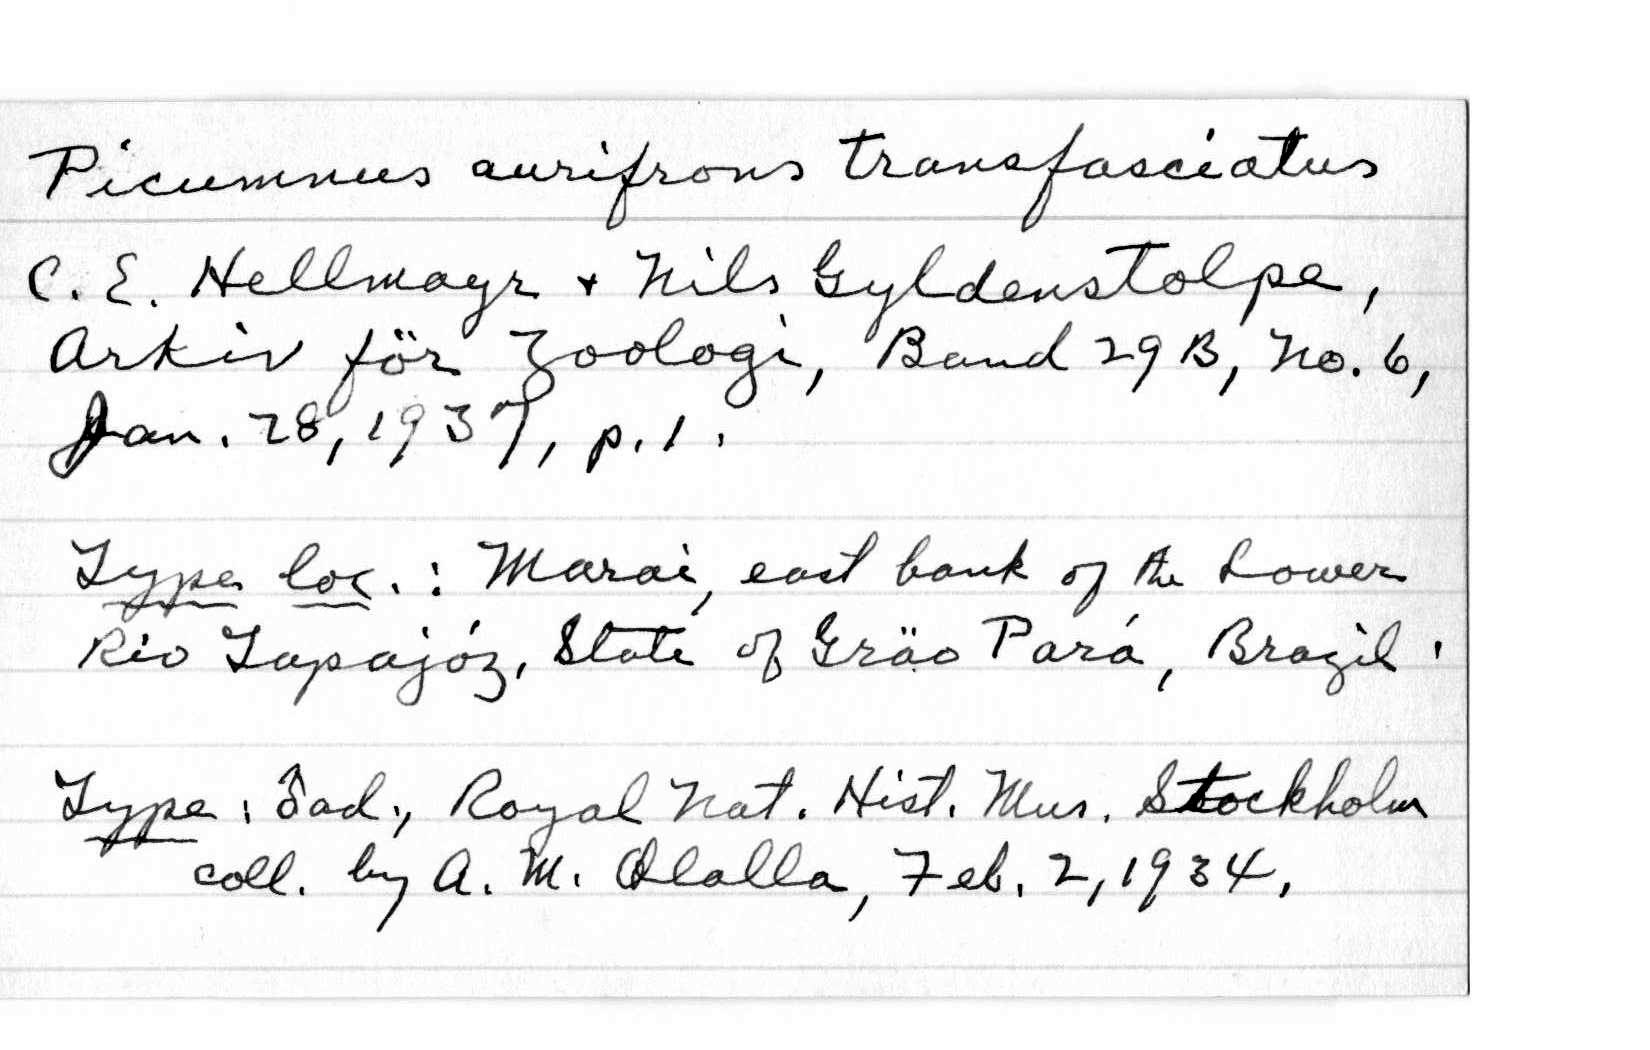 Picumnus aurifrons transfasciatus
C. E. Hellmayr + Nils Gyldenstolpe,
Arkiv för Zoologi, Band 29 B, No. 6,
Jan. 28, 1937, p. 1.
Type loc.: Marai, east bank of the Lower
Rio Tapajóz, State of Gräo Pará, Brazil.
Type: ♂ ad., Royal Nat. Hist. Mus. Stockholm
coll. by A. M. Olalla, Feb. 2, 1934.